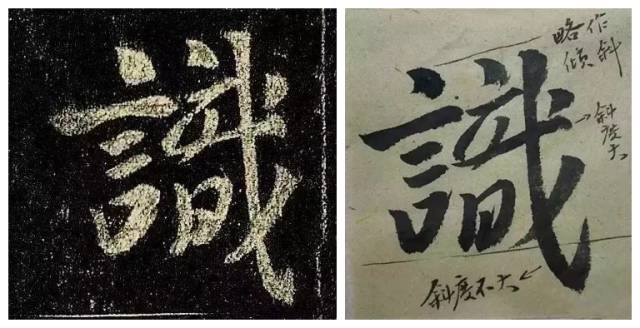 識
識
略作
倾斜
斜度大
斜度不大